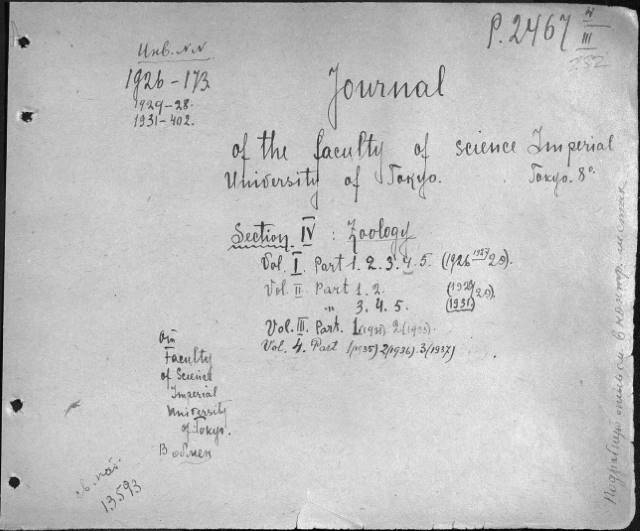 P.2467 4
III
282
Инв. N.N
1926-173
1929-28.
1931-402.
Journal
of the faculty of science Imperial
University of Tokyo. Tokyo. 8°.
Section IV : Zoology
Vol. I. Part 1. 2. 3. 4. 5. (1926 1927 29).
Vol. II. Part 1. 2. (1929
" 3. 4. 5. (1931)
Vol. III. Part. 1 2
Vol. 4. Part 1(1935) 2(1936). 3(1937)
От
Faculty
of Science
Imperial
University
of Tokyo.
В обмен
13593
Подробную опись в контр. листке